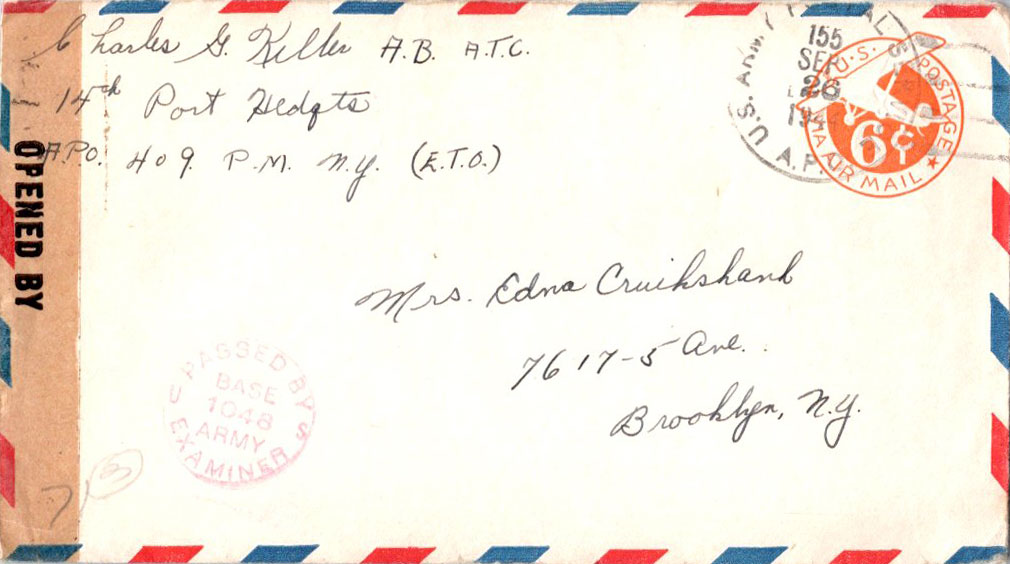 Charles G. Keller A.B. A.T.C.
14th Port Hedqts
A.P.O. 409 P.M. N.Y. (E.T.O.)
OPENED BY
U.S. ARMY POSTAL
155
SEP
26
U.S. POSTAGE
6¢
VIA AIR MAIL
Mrs. Edna Cruikshank
7617-5 Ave.
Brooklyn, N.Y.
PASSED BY
U S
BASE
1048
ARMY
EXAMINER
3